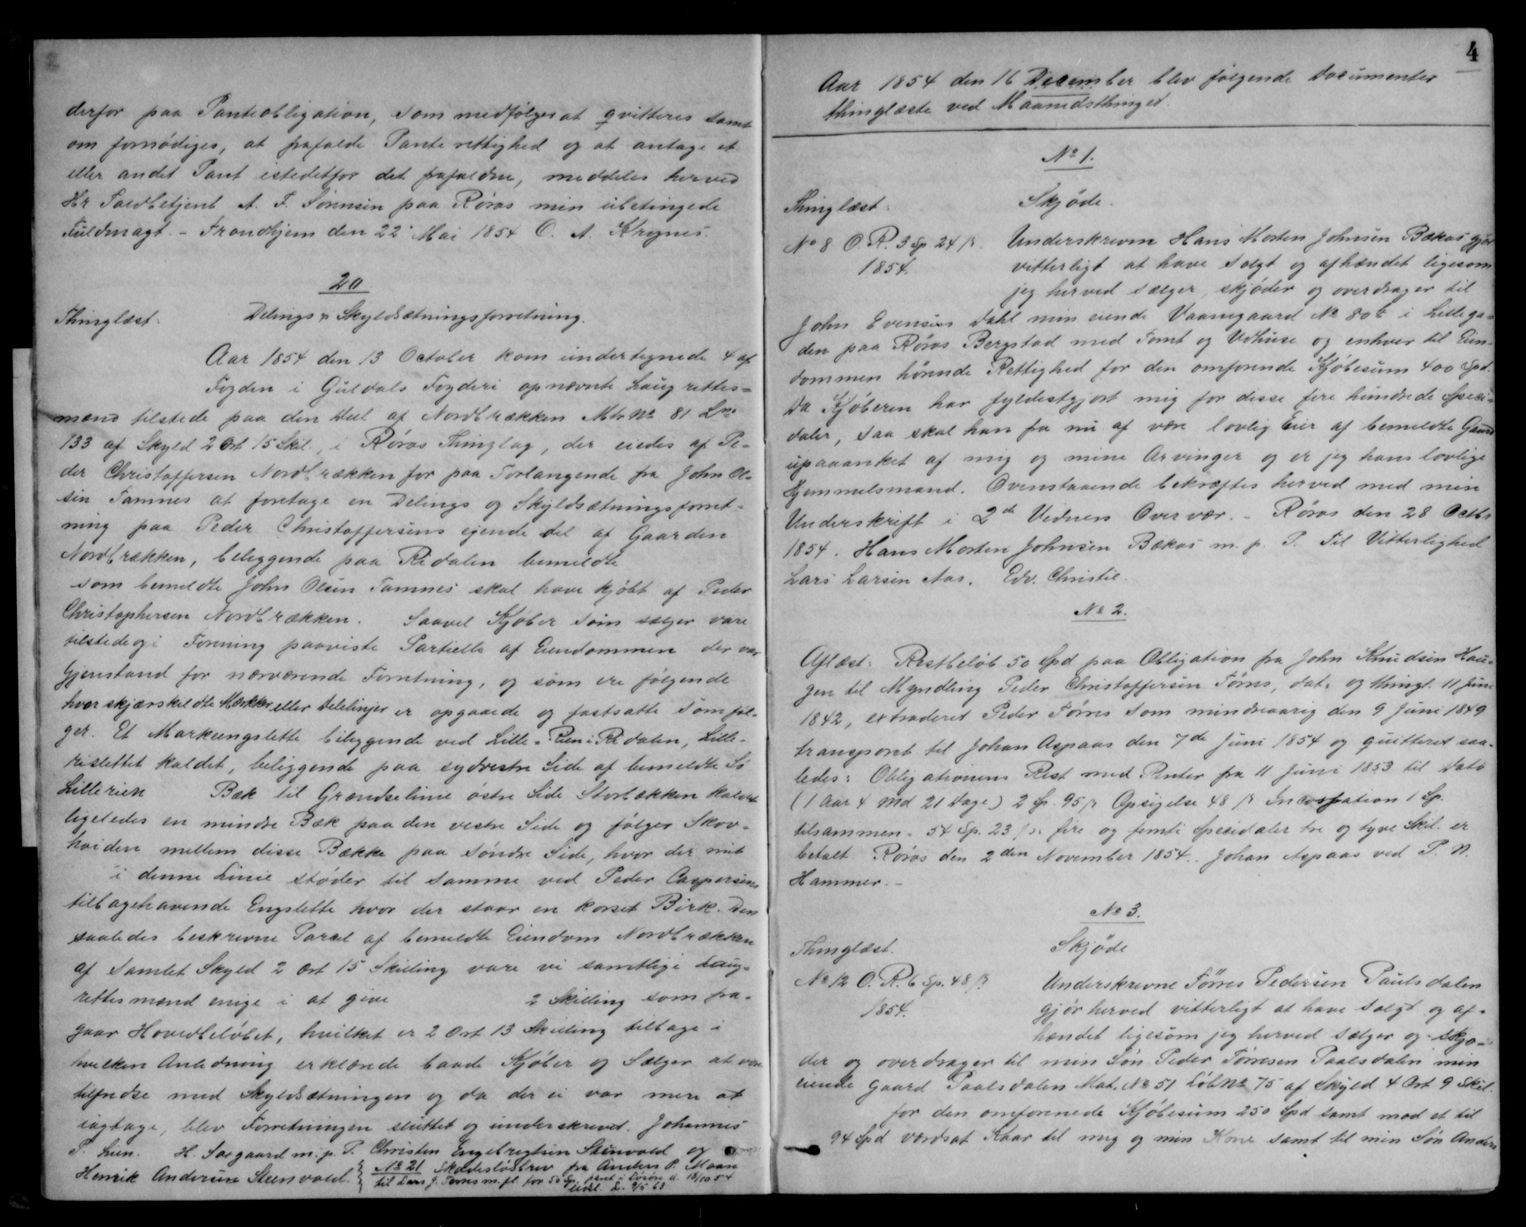 derfor paa Panteobligation, som medfølger at qvitteres samt
om fornødiges, at frafalde Panterettighed og at antage et
eller andet Pant istedetfor det frafaldne, meddeles herved
Hr Toldbetjent A. F. Sørensen paa Røros min ubetingede
Fuldmagt. - Trondhjem den 22 Mai 1854 O. A. Krognes.
20
Thinglæst. Delings & Skyldsætningsforretning.
Aar 1854 den 13 October kom undertegnede 4 af
Fogden i Guldals Fogderi opnævnte Laugrettes-
mænd tilstede paa den Deel af Nordbrækken Mtr No 81 Lno
133 af Skyld 2 Ort 15 Skil., i Røros Thinglag, der eiedes af Pe-
der Christoffersen Nordbrækken for paa Forlangende fra John Ol-
sen Tamnes at foretage en Delings og Skyldsætningsforret-
ning paa Peder Christoffersens ejende del af Gaarden
Nordbrækken, beliggende paa Rødalen bemeldte
som bemeldte John Olsen Tamnes skal have kjøbt af Peder
Christophersen Nordbrækken. Saavel Kjøber som sælger vare
tilstede og i Forening paaviste Partielle af Eiendommen der var
Gjenstand for nærværende Forretning, og som ere følgende
hvor skjærskeldte Mærker eller Delelinjer er opgaaede og fastsatte som føl-
ger. Et Markeengslette beliggende ved Lille- Rien i Rødalen, Lille-
rislettet kaldet, beliggende paa sydvestre Side af bemeldte Sø
Lillerien Bæk til Grændselinie østre Side Storbækken kaldet
ligeledes en mindre Bæk paa den vestre Side og følger Skov-
hviden mellem disse Bække paa søndre Side, hvor der midt
i denne Linie støder til samme ved Peder Caspersens
tilbagehavende Engslette hvor der staar en korset Birk. Den
saaledes beskrevne Parcel af bemeldte Eiendom Nordbrækken
af samlet Skyld 2 ort 15 Skilling vare vi samtlige Laug-
rettesmænd enige i at give 2 Skilling som fra-
gaar Hovedbeløbet, hvilket er 2 Ort 13 Skilling tilbage i
hvilken Anledning erklærede baade Kjøber og Sælger at være
tilfredse med Skyldsætningen og da der ei var mere at
iagttage, blev Forretningen sluttet og underskrevet. Johannes
P. Lien. H. Sorgaard m. p. P. Christen Engebregtsen Steenvold og
Henrik Andersen Steenvold.
No 21 Skadesløsbrev fra Anders P. Moan
til Lars J. Tørres m.fl. for 50 Sp.
4
Aar 1854 den 16 December blev følgende Documenter
thinglæste ved Maanedsthinget.
No 1.
Thinglæst. Skjøde.
No 8 O. R. 3 Sp 24 ß. Underskrevne Hans Morten Johnsen Bækos gjør
1854. vitterligt at have solgt og afhændet ligesom
jeg herved sælger, skjøder og overdrager til
John Evensen Dahl min eiende Vaanegaard No 80b i Lillega-
den paa Røros Bergstad med Tomt og Udhuse og enhver til Eien-
dommen hørende Rettighed for den omforende Kjøbesum 400 Spd.
Da Kjøberen har fyldestgjort mig for disse fire hundrede Speci-
daler, saa skal han fra nu af være lovlig Eier af bemeldte Gaard
upaaanket af mig og mine Arvinger og er jeg hans lovlige
Hjemmelsmand. Ovenstaaende bekræftes herved med min
Underskrift i 2de Vidners Overvær. - Røros den 28 Octbr
1854. Hans Morten Johnsen Bækos m. p. P. Til Vitterlighed
Lars Larsen Aas. Edv. Christie.
No 2.
Aflæst: Restbeløb 50 Spd paa Obligation fra John Knudsen Hau-
gen til Myndling Peder Christoffersen Tørres, dat. og thingl. 11 Juni
1842, extraderet Peder Tørres som mindreaarig den 9 Juni 1849
transporet til Johan Aspaas den 7de Juni 1854 og quitteret saa-
ledes: Obligationens Rest med Renter fra 11 Juni 1853 til dato
(1 Aar 4 Md 21 Dage) 2 Sp. 95 ß Opsigelse 48 ß Incassation 1 Sp.
tilsammen. 54 Sp. 23 ß. fire og femti Spesidaler tre og tyve Skil. er
betalt Røros den 2den November 1854. Johan Aspaas ved P. N.
Hammer. -
No 3.
Thinglæst. Skjøde
No 12 O. R. 6 Sp. 48 ß Underskrevne Tørres Pedersen Paulsdalen
1854. gjør herved vitterligt at have solgt og af-
hændet ligesom jeg herved sælger og skjø-
der og overdrager til min Søn Peder Tørresen Paalsdalen min
eiende gaard Paalsdalen Mat. No 51 Løb No 75 af Skyld 4 Ort 9 Skil.
for den omforenede Kjøbesum 250 Spd samt mod et til
94 Spd værdsat Kaar til mig og min Kone samt til min Søn Anders